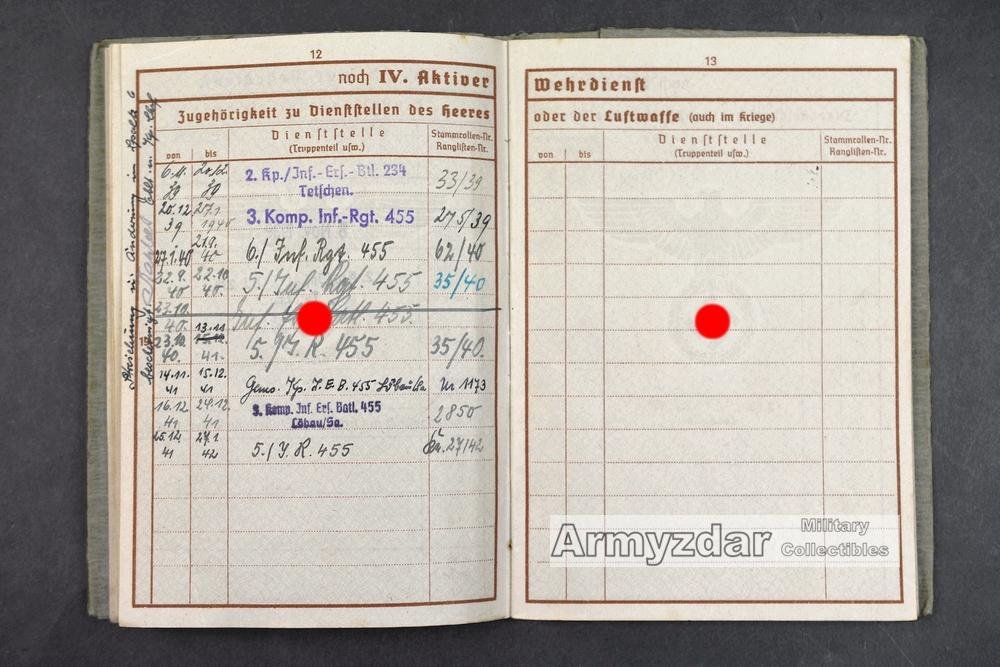 12
noch IV. Aktiver
Zugehörigkeit zu Dienststellen des Heeres
von
bis
Dienststelle
(Truppenteil usw.)
Stammrollen-Nr.
Ranglisten-Nr.
2. Kp./Inf.-Ers.-Btl. 234
Tetschen.
33/39
20.12. 27.1.
39 1940
3. Komp. Inf.-Rgt. 455
275/39
27.1.40 21.9. 40
6./ Inf. Rgt. 455
62/40
22.9. 22.10.
40 40.
5./ Inf. Rgt. 455
35/40
23.10.
40.
455.
23.10. 13.11
40. 41.
5./J.R. 455
35/40.
14.11. 15.12.
41 41
Gens. Kp. J.E.B. 455 Löbau/Sa.
Nr 1173
16.12. 24.12.
41 41
3. Komp. Inf. Ers. Batl. 455
Löbau/Sa.
2850
25.12. 27.1
41 42
5./J.R. 455
27/42
13
Wehrdienst
oder der Luftwaffe (auch im Kriege)
von
bis
Dienststelle
(Truppenteil usw.)
Stammrollen-Nr.
Ranglisten-Nr.
Armyzdar Military
Collectibles